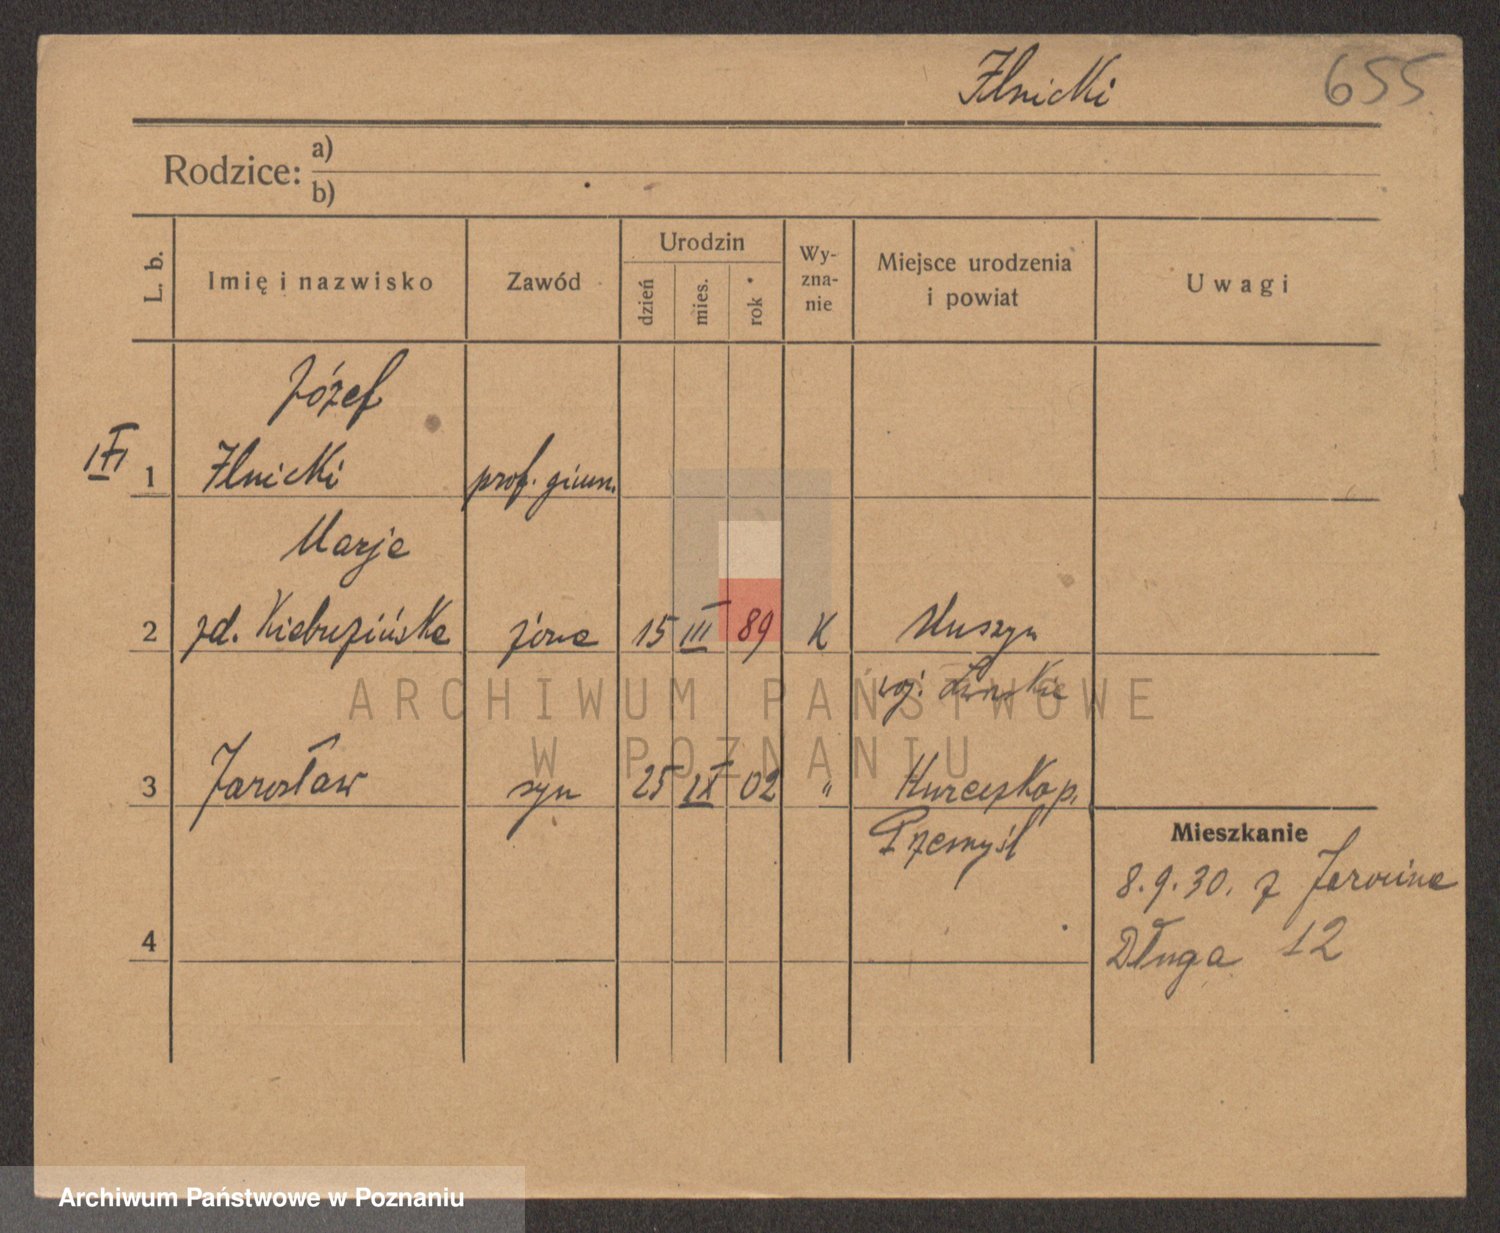 Ilnicki 655
Rodzice: a)
b)
L. b. Imię i nazwisko Zawód Urodzin dzień mies. rok Wy-zna-nie Miejsce urodzenia i powiat Uwagi
Józef
1 Ilnicki prof. gimn.
Marja
2 zd. żona 15 III 89 K Muszyn
woj.
3 Jarosław syn 25 IX 02 "
Przemyśl
Mieszkanie
8.9.30. z Jarocina
4 Długa 12
ARCHIWUM PAŃSTWOWE
W POZNANIU
Archiwum Państwowe w Poznaniu